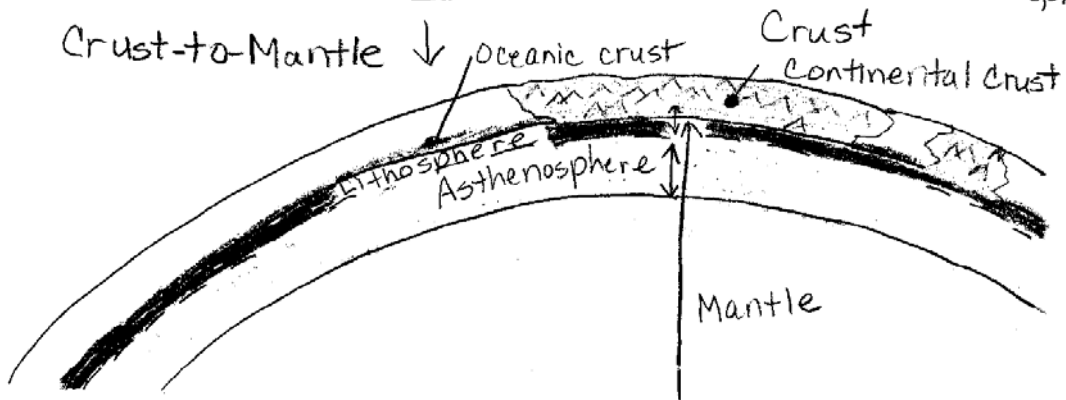 Crust-to-Mantle
Oceanic crust
Crust
Continental Crust
Lithosphere
Asthenosphere
Mantle